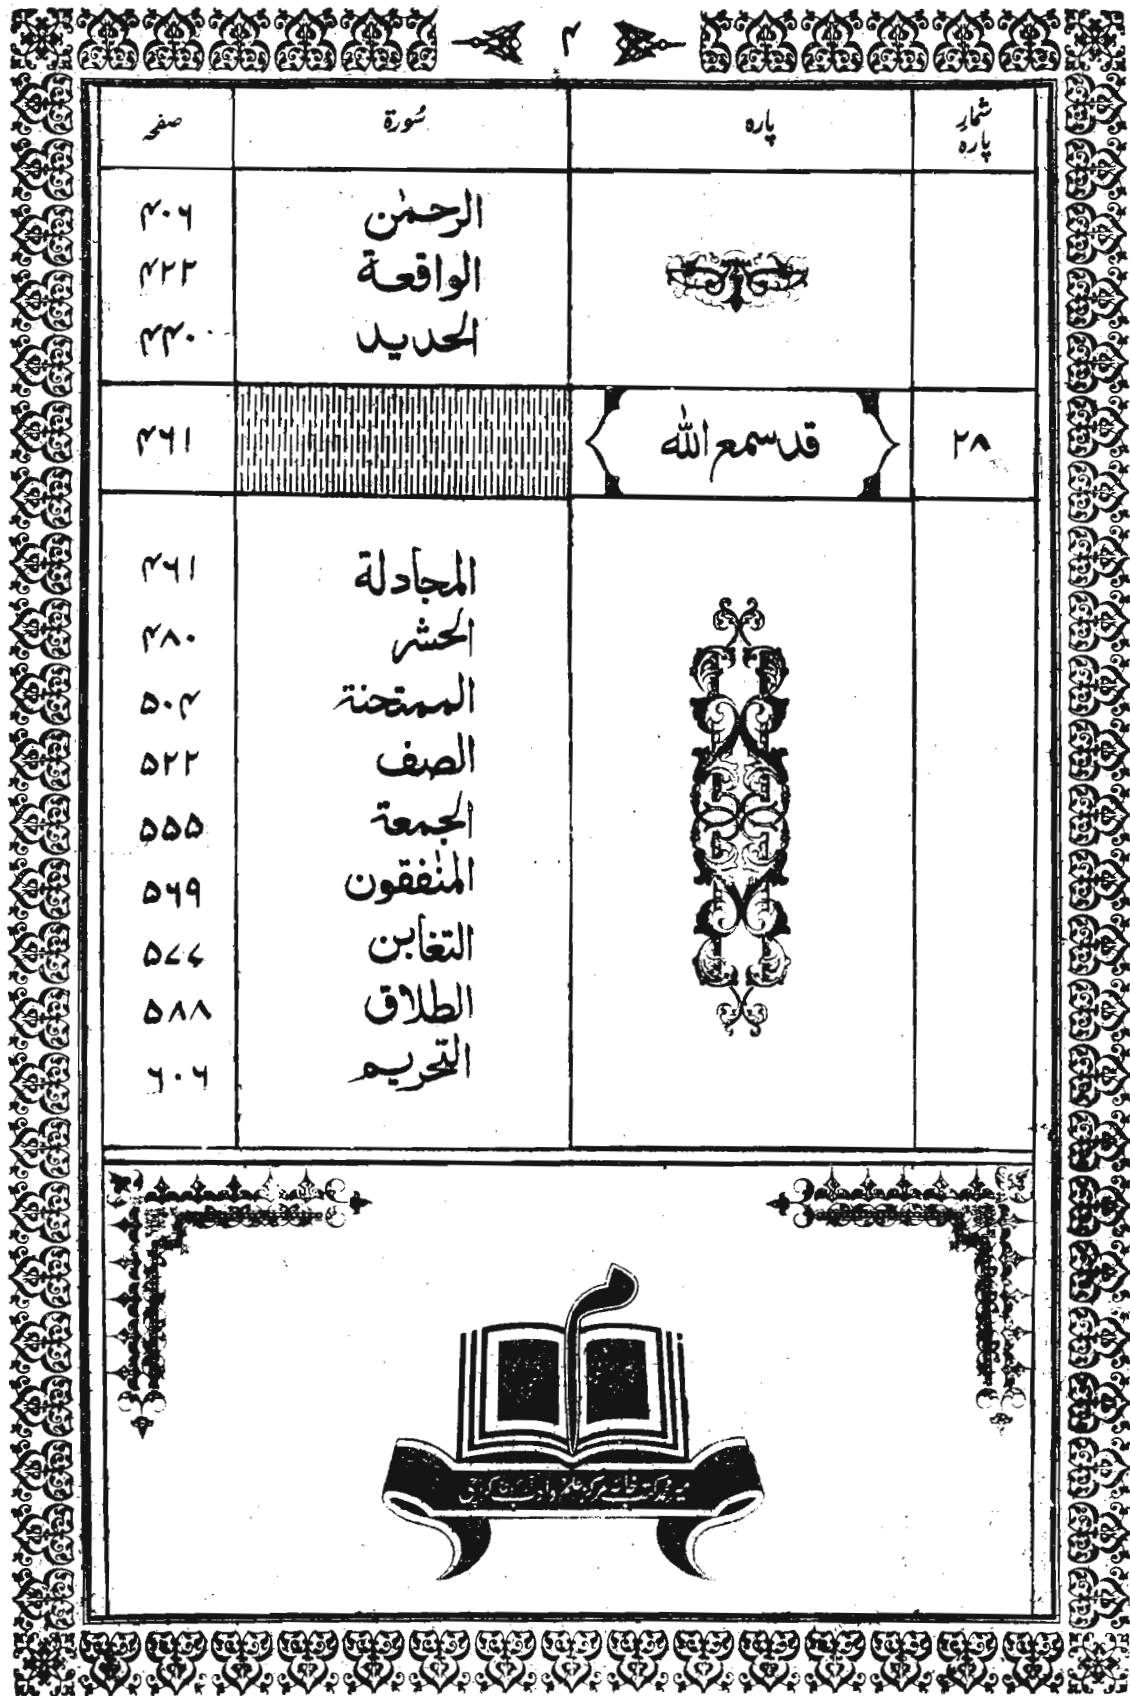 ۴
شمارِ پارہ	پارہ	سُورۃ	صفحہ
الرحمٰن	۴۰۶
الواقعة	۴۲۲
الحديد	۴۴۰
۲۸	قد سمع اللّٰه	۴۶۱
المجادلة	۴۶۱
الحشر	۴۸۰
الممتحنة	۵۰۴
الصف	۵۲۲
الجمعة	۵۵۵
المنٰفقون	۵۶۹
التغابن	۵۷۷
الطلاق	۵۸۸
التحريم	۶۰۶
میر محمد کتب خانہ مرکز علم و ادب کراچی